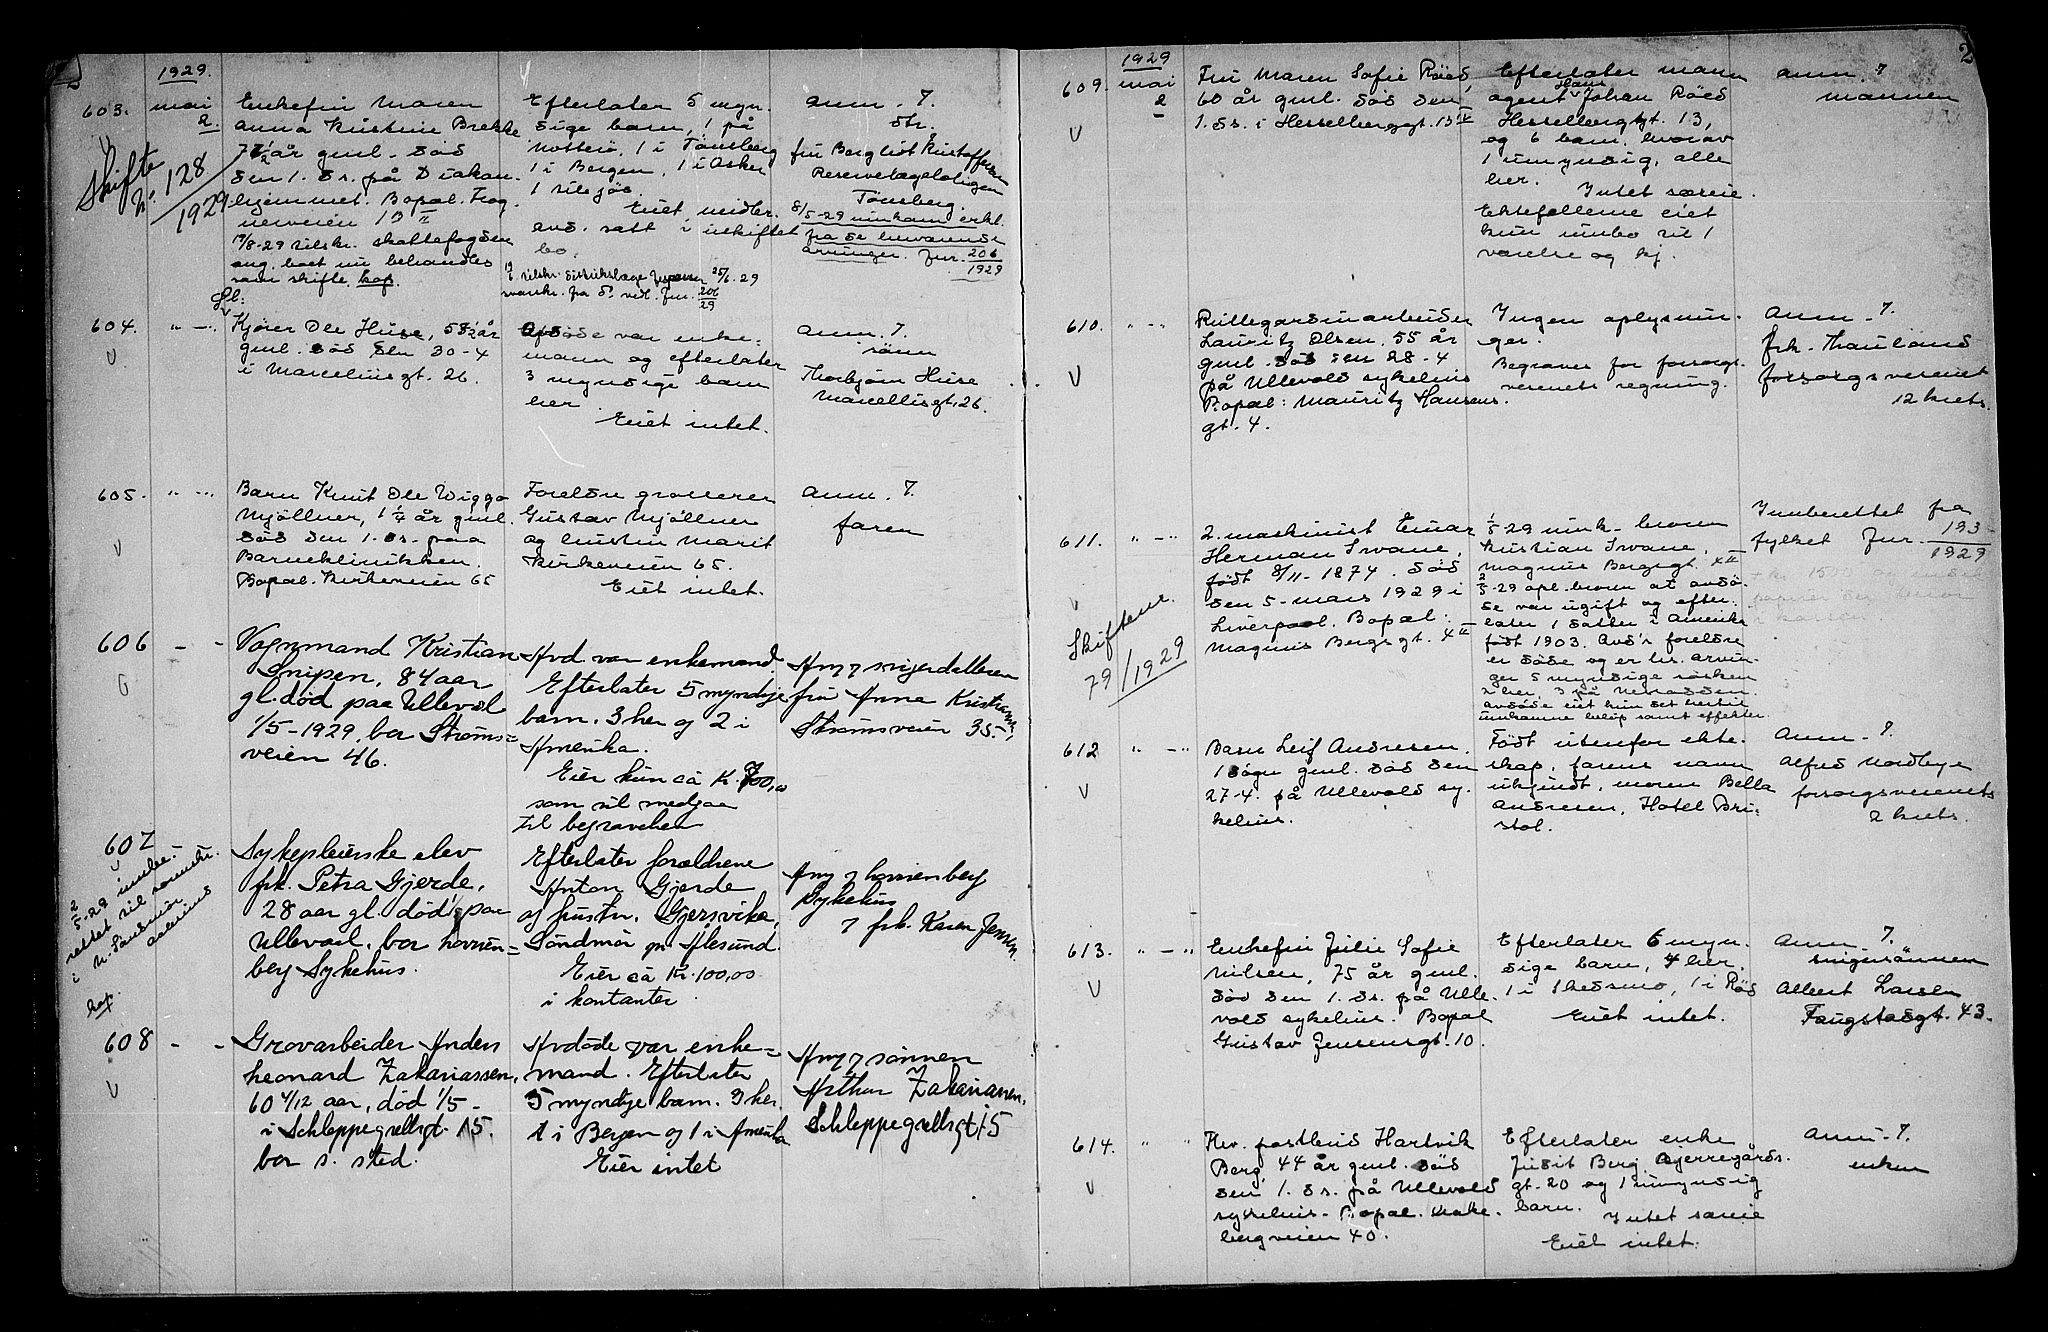 1929.
603. mai 2.
Enkefru Maren
Anna Kristine Brekke
77½ år gml. död
den 1. ds. på Diakon.
hjemmet. Bopæl. Frog
nerveien 13 II
skattefogden
ang. boet nu behandles
som skifte. kop.
Skifte
Nr. 128
1929
Efterlater 5 myn.
dige barn, 1 på
Nötterö, 1 i Tönsberg
1 i Bergen, 1 i Asker
1 tilsjös.
Eiet midler.
avd. satt i uskiftet
bo.
25/6-29
Jur. 206
29
Anm. 7.
dtr.
fru Bergliot Kristoffersen
Reservelægeboligen
Tönsberg.
8/5-29 innkom erkl.
fra de
arvinger. Jur. 206
1929
604. " - "
Kjörer Ole Huse, 58½ år
gml. död den 30-4
i Marcelius gt. 26.
Avdöde var enke-
mann og efterlater
3 myndige barn
her.
Eiet intet.
Anm. 7.
sönn
Thorbjörn Huse
Marcellisgt. 26.
605. " - "
Barn Knut Ole Wiggo
Mjöllner, 1¼ år gml.
död den 1. ds. paa
Barneklinikken.
Bopæl. Kirkeveien 65
Foreldre grosserer
Gustav Mjöllner
og hustru Marit
Kirkeveien 65.
Eiet intet.
Anm. 7.
faren
606 - -
Vognmand Kristian
Snipen, 84 aar
gl. död paa Ulleval
1/5-1929, bor Ströms=
veien 46.
Avd. var enkemand
Efterlater 5 myndige
barn. 3 her og 2 i
Amerika.
Eier kun ca K. 700,00
som vil medgaa
til begravelsen
Anm 7 svigerdatteren
fru Anna Kristians
Strömsveien 35.
607
Sykepleierske elev
frk. Petra Gjerde,
28 aar gl. död paa
Ullevaal. bor Lovisen=
berg Sykehus.
2/5-29 innbe-
rettet til sorenskr.
i N. Sundmör
Aalesund
kop.
Efterlater forældrene
Anton Gjerde
og hustr. Gjersvika,
Söndmör pr Ålesund.
Eier ca Kr. 100,00
i kontanter
Anm 7 Lovisenberg
Sykehus
7 frk. Karen Jensen
608 - -
Grovarbeider Anders
Leonard Zakariassen,
60 4/12 aar, död 1/5-
i Schleppegrellsgt. 15.
bor s. sted.
Avdöde var enke=
mand. Efterlater
5 myndige barn. 3 her.
1 i Bergen og 1 i Amerika
Eier intet
Anm 7 sönnen
Arthur Zakariassen,
Schleppegrellsgt 15
1929
609. mai 2
Fru Maren Sofie Röed,
60 år gml. död den
1. ds. i Hesselbergsgt. 13 IV
Efterlater mann
agent Hans Johan Röed
Hesselbergsgt. 13,
og 6 barn, hvorav
1 umyndig, alle
her.
Intet særeie.
Ektefellene eiet
kun innbo til 1
værelse og kj.
Anm. 7
mannen
610. " - "
Rullegardinarbeider
Lauritz Olsen, 55 år
gml. död den 28-4
på Ullevold sykehus
Bopæl: Mauritz Hansens.
gt. 4.
Ingen oplysnin-
ger.
Begraves for forsorgs.
verenets regning.
Anm. 7.
frk. Thauland
forsorgsverenet
12 krets.
611. " - "
2. maskinist Einar
Herman Svane,
födt 8/11-1874. död
den 5-mars 1929 i
Liverpool. Bopæl:
Magnus Bergs gt. 4 II
Skiftenr.
79/1929
Kristian Svane,
Magnus Bergsgt. 4 II
2/5-29 opl. broren at avdö-
de var ugift og efter.
later 1 datter i Amerika
födt 1903. Avd's foreldre
er döde og er hs. arvin-
ger 5 myndige sösken
2 her, 3 på Nesodden.
avdöde eiet kun det hertil
innkomne belöp samt effekter.
Innberettet fra
fylket Jur. 193
1929
612 " - "
Barn Leif Andresen,
1 dögn gml. död den
27-4. på Ullevold sy.
kehus.
Födt utenfor ekte.
skap, farens navn
ukjendt, moren Bella
Andresen, Hotel Bri-
stol.
Anm. 7.
Alfred Nordbye
forsorgsverenets
2 krets.
613. " - "
Enkefru Julie Sofie
Nilsen, 75 år gml.
död den 1. ds. på Ulle.
vold sykehus. Bopæl
Gustav Jensensgt. 10.
Efterlater 6 myn.
dige barn, 4 her,
1 i Skedsmo, 1 i Röd
Eiet intet.
Anm. 7.
svigersönnen
Albert Larsen
Faugstadgt. 43.
614. " "
Fhv. postbud Hartvik
Berg, 44 år gml. död
den 1. ds. på Ullevold
sykehus. Bopæl.
bergveien 40.
Efterlater enke
Judit Berg, Bjerregårds.
gt. 20 og 1 umyndig
barn.
Intet særeie
Eiet intet.
Anm. 7.
enken